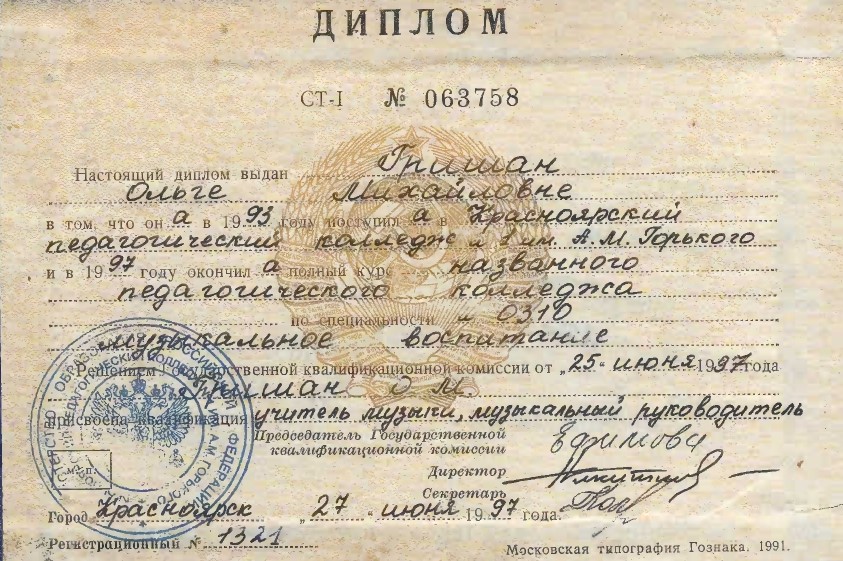 ДИПЛОМ
СТ-I № 063758
Настоящий диплом выдан Гришан
Ольге Михайловне
в том, что он а в 1993 году поступил а в Красноярский
педагогический колледж № 2 им. А.М. Горького
и в 1997 году окончил а полный курс названного
педагогического колледжа
по специальности № 0310
музыкальное воспитание
Решением Государственной квалификационной комиссии от „25" июня 1997 года
Гришан О М.
присвоена квалификация учитель музыки, музыкальный руководитель
Председатель Государственной
квалификационной комиссии Ефимова
Директор
Секретарь
Город Красноярск „27" июня 1997 года.
Регистрационный № 1321
Московская типография Гознака. 1991.
М.П.